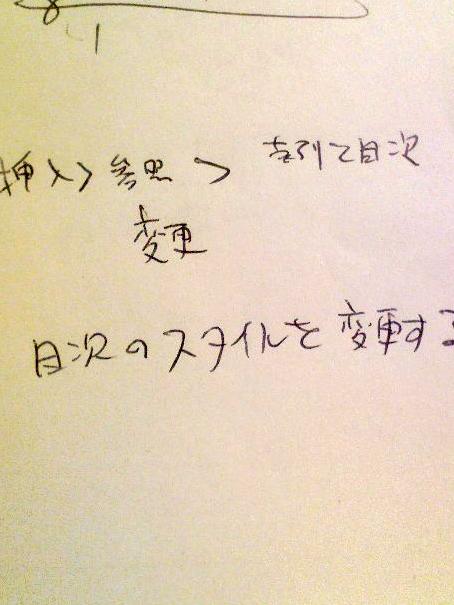 挿入>参照> 索引と目次
変更
目次のスタイルを変更する